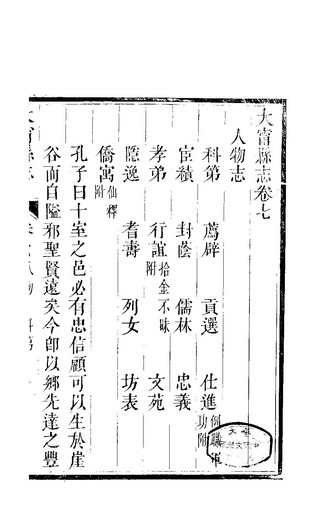 大甯縣志卷七
人物志
科第 薦辟 貢選 仕進例職軍功附
宦積 封蔭 儒林 忠義
孝弟 行誼拾金不昧附 文苑
隱逸 耆壽 列女 坊表
僑寓仙釋附
孔子曰十室之邑必有忠信顧可以生於崖
谷而自隘邪聖賢遠矣今卽以鄉先達之豐